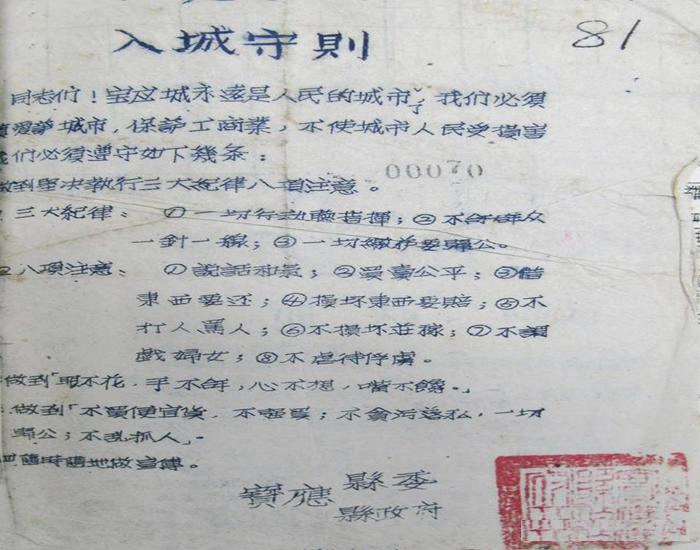 入城守則
81
同志们！宝应城永遠是人民的城市了，我们必须
愛護城市，保護工商業，不使城市人民受損害
我们必须遵守如下幾条：
00070
做到坚决执行三大紀律八項注意。
三大紀律：①一切行动聽指揮；②不拿群众
一針一線；③一切缴获要歸公。
八項注意：①說話和氣；②買賣公平；③借
東西要还；④損坏東西要賠；⑤不
打人罵人；⑥不損坏莊稼；⑦不調
戲婦女；⑧不虐待俘虜。
做到「眼不花，手不拿，心不想，嘴不饞。」
做到「不買便宜貨，不乱買；不貪污自私，一切
歸公；不乱抓人」。
四隨時隨地做宣傳。
寶應縣委
縣政府